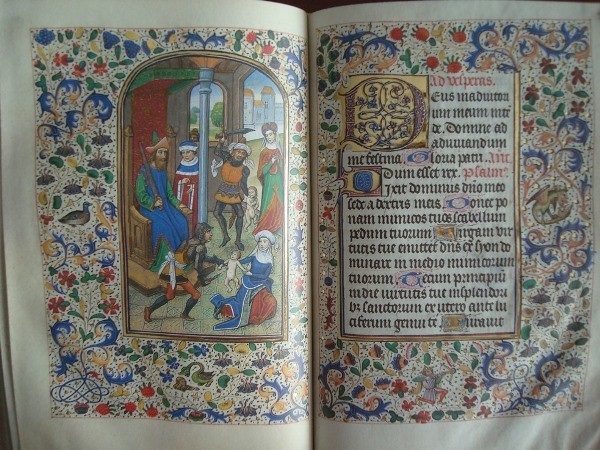 ad vesperas.
Deus in adiutori
um meum inte
de. Domine ad
adiuvandum
me festina. Gloria patri. Ant.
Dum esset rex. Psalm
Dixit dominus dno meo
sede a dextris meis Donec po
nam inimicos tuos scabellum
pedum tuorum Virgam vir
tutis tue emittet dns ex syon do
minare in medio inimicorum
tuorum Tecum principiū
in die virtutis tue in splendori
b3 sanctorum ex utero ante lu
ciferum genui te Iuravit